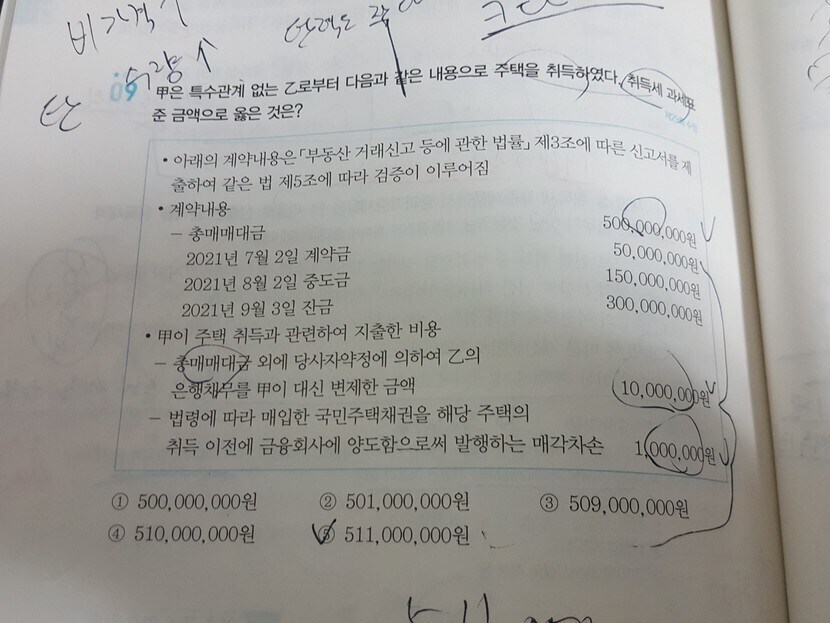 비가격
수량↑
탄
09
甲은 특수관계 없는 乙로부터 다음과 같은 내용으로 주택을 취득하였다. 취득세 과세표
준 금액으로 옳은 것은?
• 아래의 계약내용은 「부동산 거래신고 등에 관한 법률」 제3조에 따른 신고서를 제
출하여 같은 법 제5조에 따라 검증이 이루어짐
• 계약내용
- 총매매대금 500,000,000원
2021년 7월 2일 계약금 50,000,000원
2021년 8월 2일 중도금 150,000,000원
2021년 9월 3일 잔금 300,000,000원
• 甲이 주택 취득과 관련하여 지출한 비용
- 총매매대금 외에 당사자약정에 의하여 乙의
은행채무를 甲이 대신 변제한 금액 10,000,000원
- 법령에 따라 매입한 국민주택채권을 해당 주택의
취득 이전에 금융회사에 양도함으로써 발행하는 매각차손 1,000,000원
① 500,000,000원 ② 501,000,000원 ③ 509,000,000원
④ 510,000,000원 ⑤ 511,000,000원